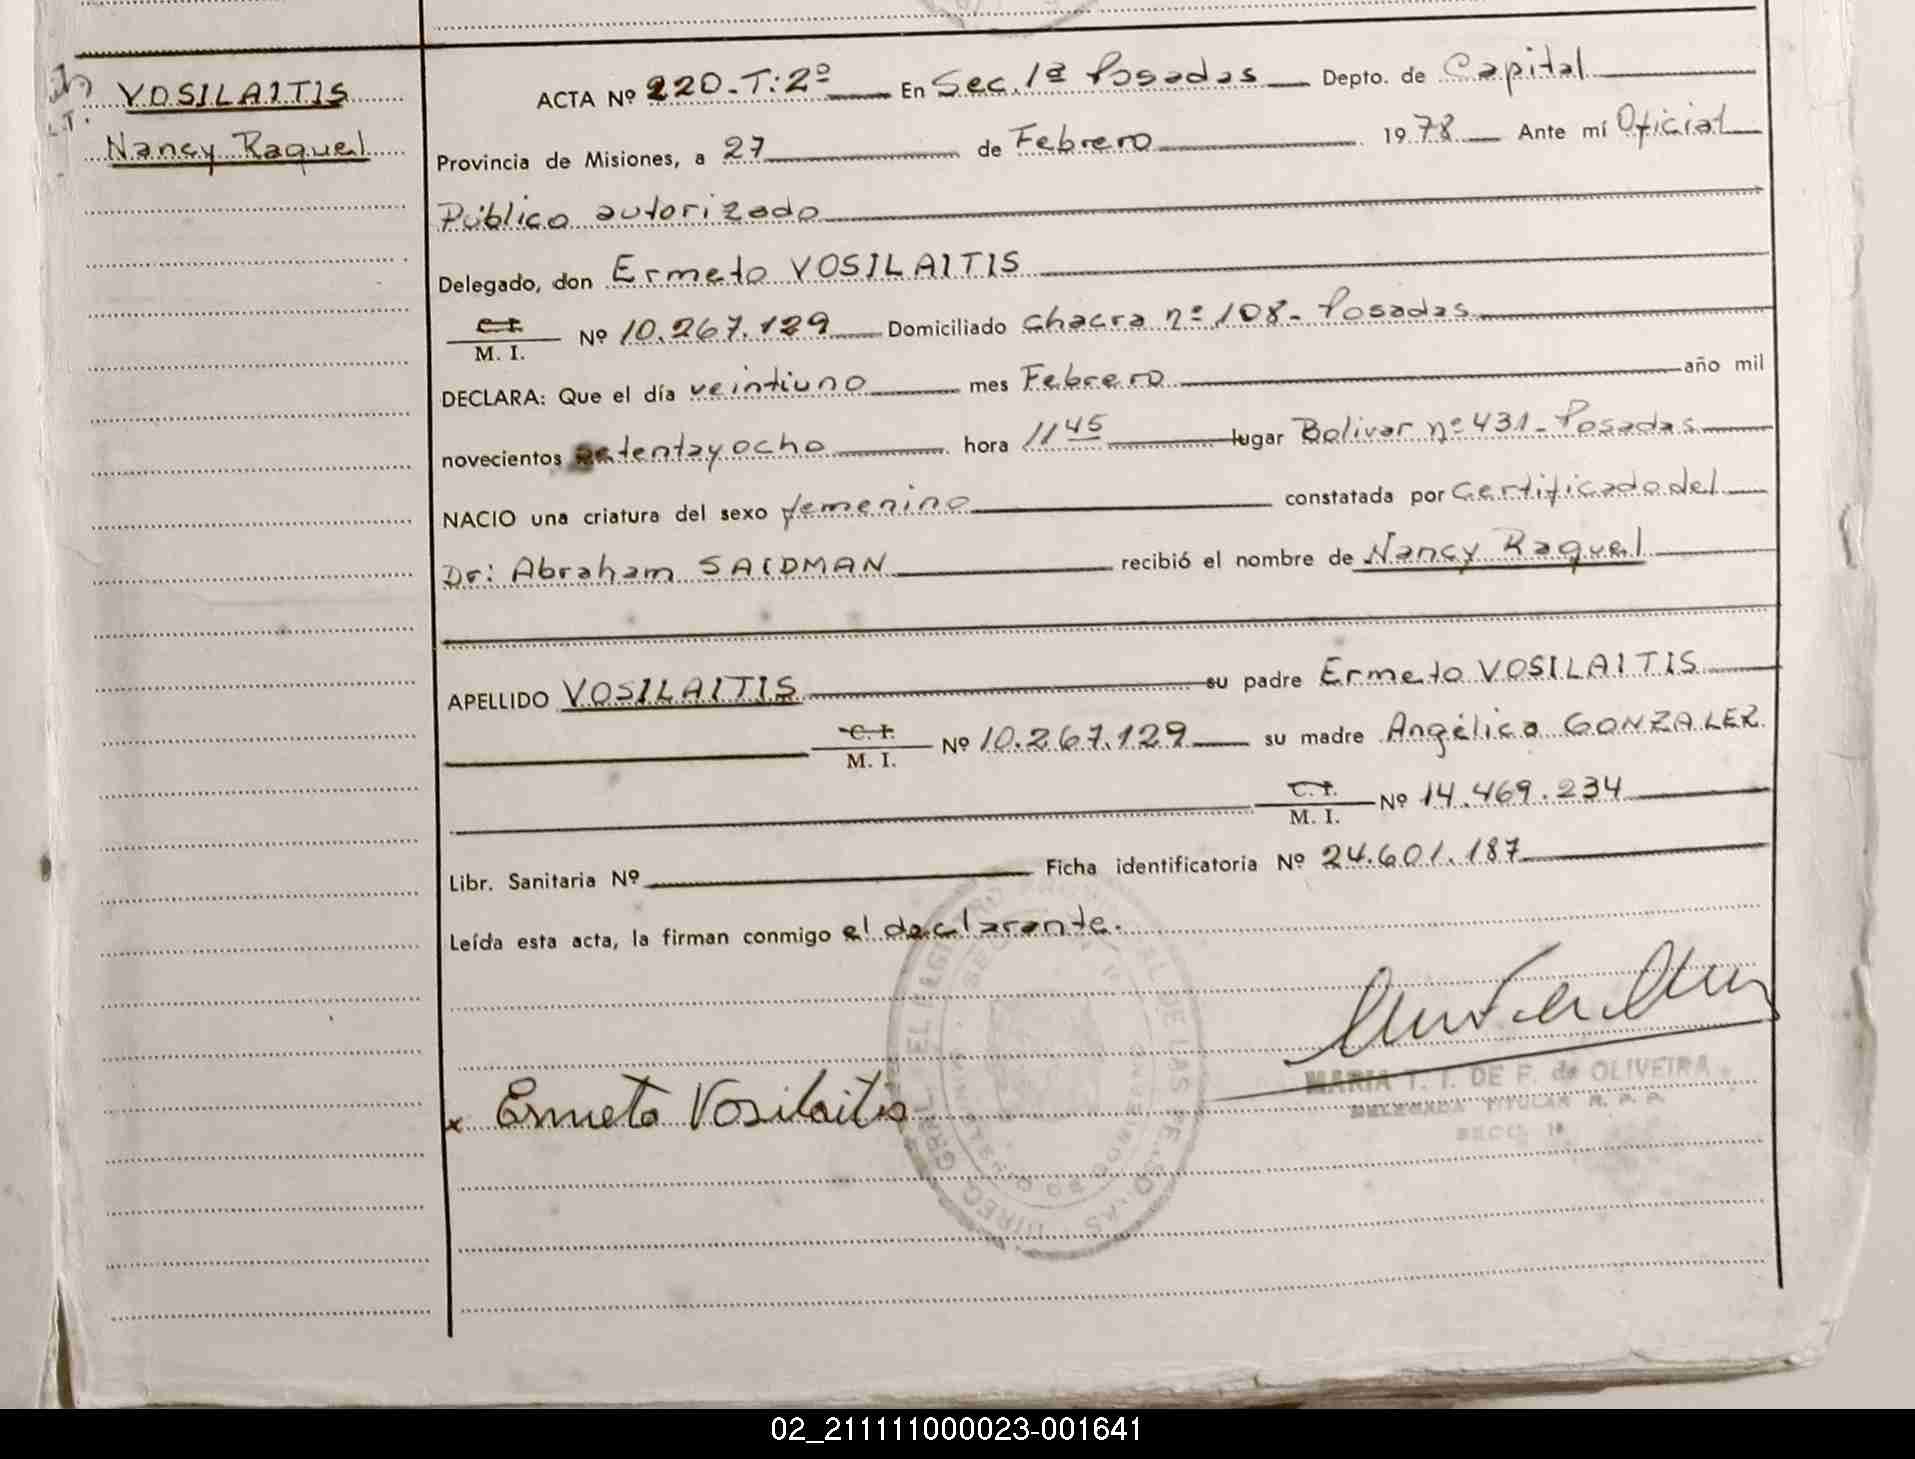 VOSILAITIS
Nancy Raquel
ACTA Nº 220-T:2º En Sec. 1ª Posadas Depto. de Capital
Provincia de Misiones, a 27 de Febrero 1978 Ante mí Oficial
Público autorizado
Delegado, don Ermeto VOSILAITIS
C. I.
M. I. Nº 10.267.129 Domiciliado chacra nº 108- Posadas
DECLARA: Que el día veintiuno mes Febrero año mil
novecientos setentayocho hora 11 45 lugar Bolivar nº 431- Posadas
NACIO una criatura del sexo femenino constatada por Certificado del
Dr: Abraham SAIDMAN recibió el nombre de Nancy Raquel
APELLIDO VOSILAITIS su padre Ermeto VOSILAITIS
C. I.
M. I. Nº 10.267.129 su madre Angélica GONZALEZ
C. I.
M. I. Nº 14.469.234
Libr. Sanitaria Nº Ficha identificatoria Nº 24.601.187
Leída esta acta, la firman conmigo el declarante.
x Ermeto Vosilaitis
MARIA T. T. DE F. de OLIVEIRA
DELEGADA TITULAR R. P. P.
SECC. 1ª
02_211111000023-001641